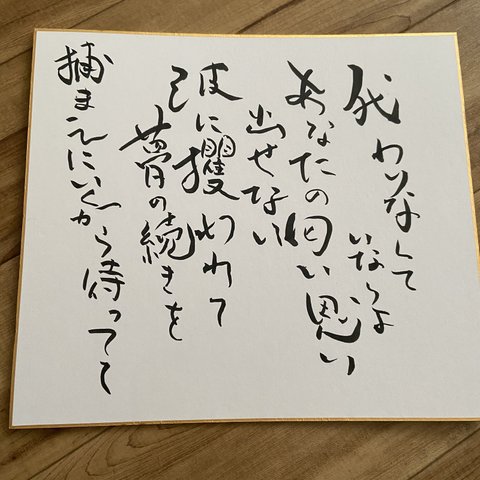 代わりなんて
いらないよ
あなたの匂い思い
出せない
波に攫われて
夢の続きを
捕まえにいくから待ってて